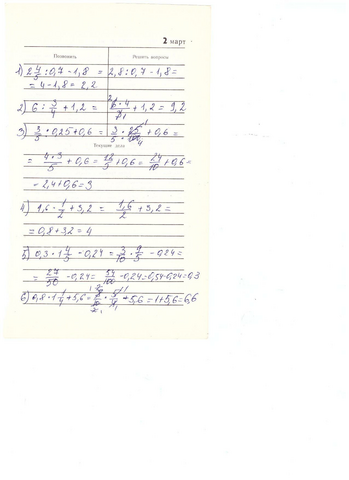 2 март
Позвонить Решить вопросы
1) 2 4/5 : 0,7 - 1,8 = 2,8 : 0,7 - 1,8 =
= 4 - 1,8 = 2,2
2) 6 : 3/4 + 1,2 = 6 · 4/3 + 1,2 = 9,2
3) 3/5 : 0,25 + 0,6 = 3/5 : 25/100 + 0,6 =
Текущие дела
= 4·3/5 + 0,6 = 12/5 + 0,6 = 24/10 + 0,6 =
= 2,4 + 0,6 = 3
4) 1,6 · 1/2 + 3,2 = 1,6/2 + 3,2 =
= 0,8 + 3,2 = 4
5) 0,3 · 1 4/5 - 0,24 = 3/10 · 9/5 - 0,24 =
= 27/50 - 0,24 = 54/100 - 0,24 = 0,54 - 0,24 = 0,3
6) 0,8 · 1 1/4 + 5,6 = 8/10 · 5/4 + 5,6 = 1 + 5,6 = 6,6